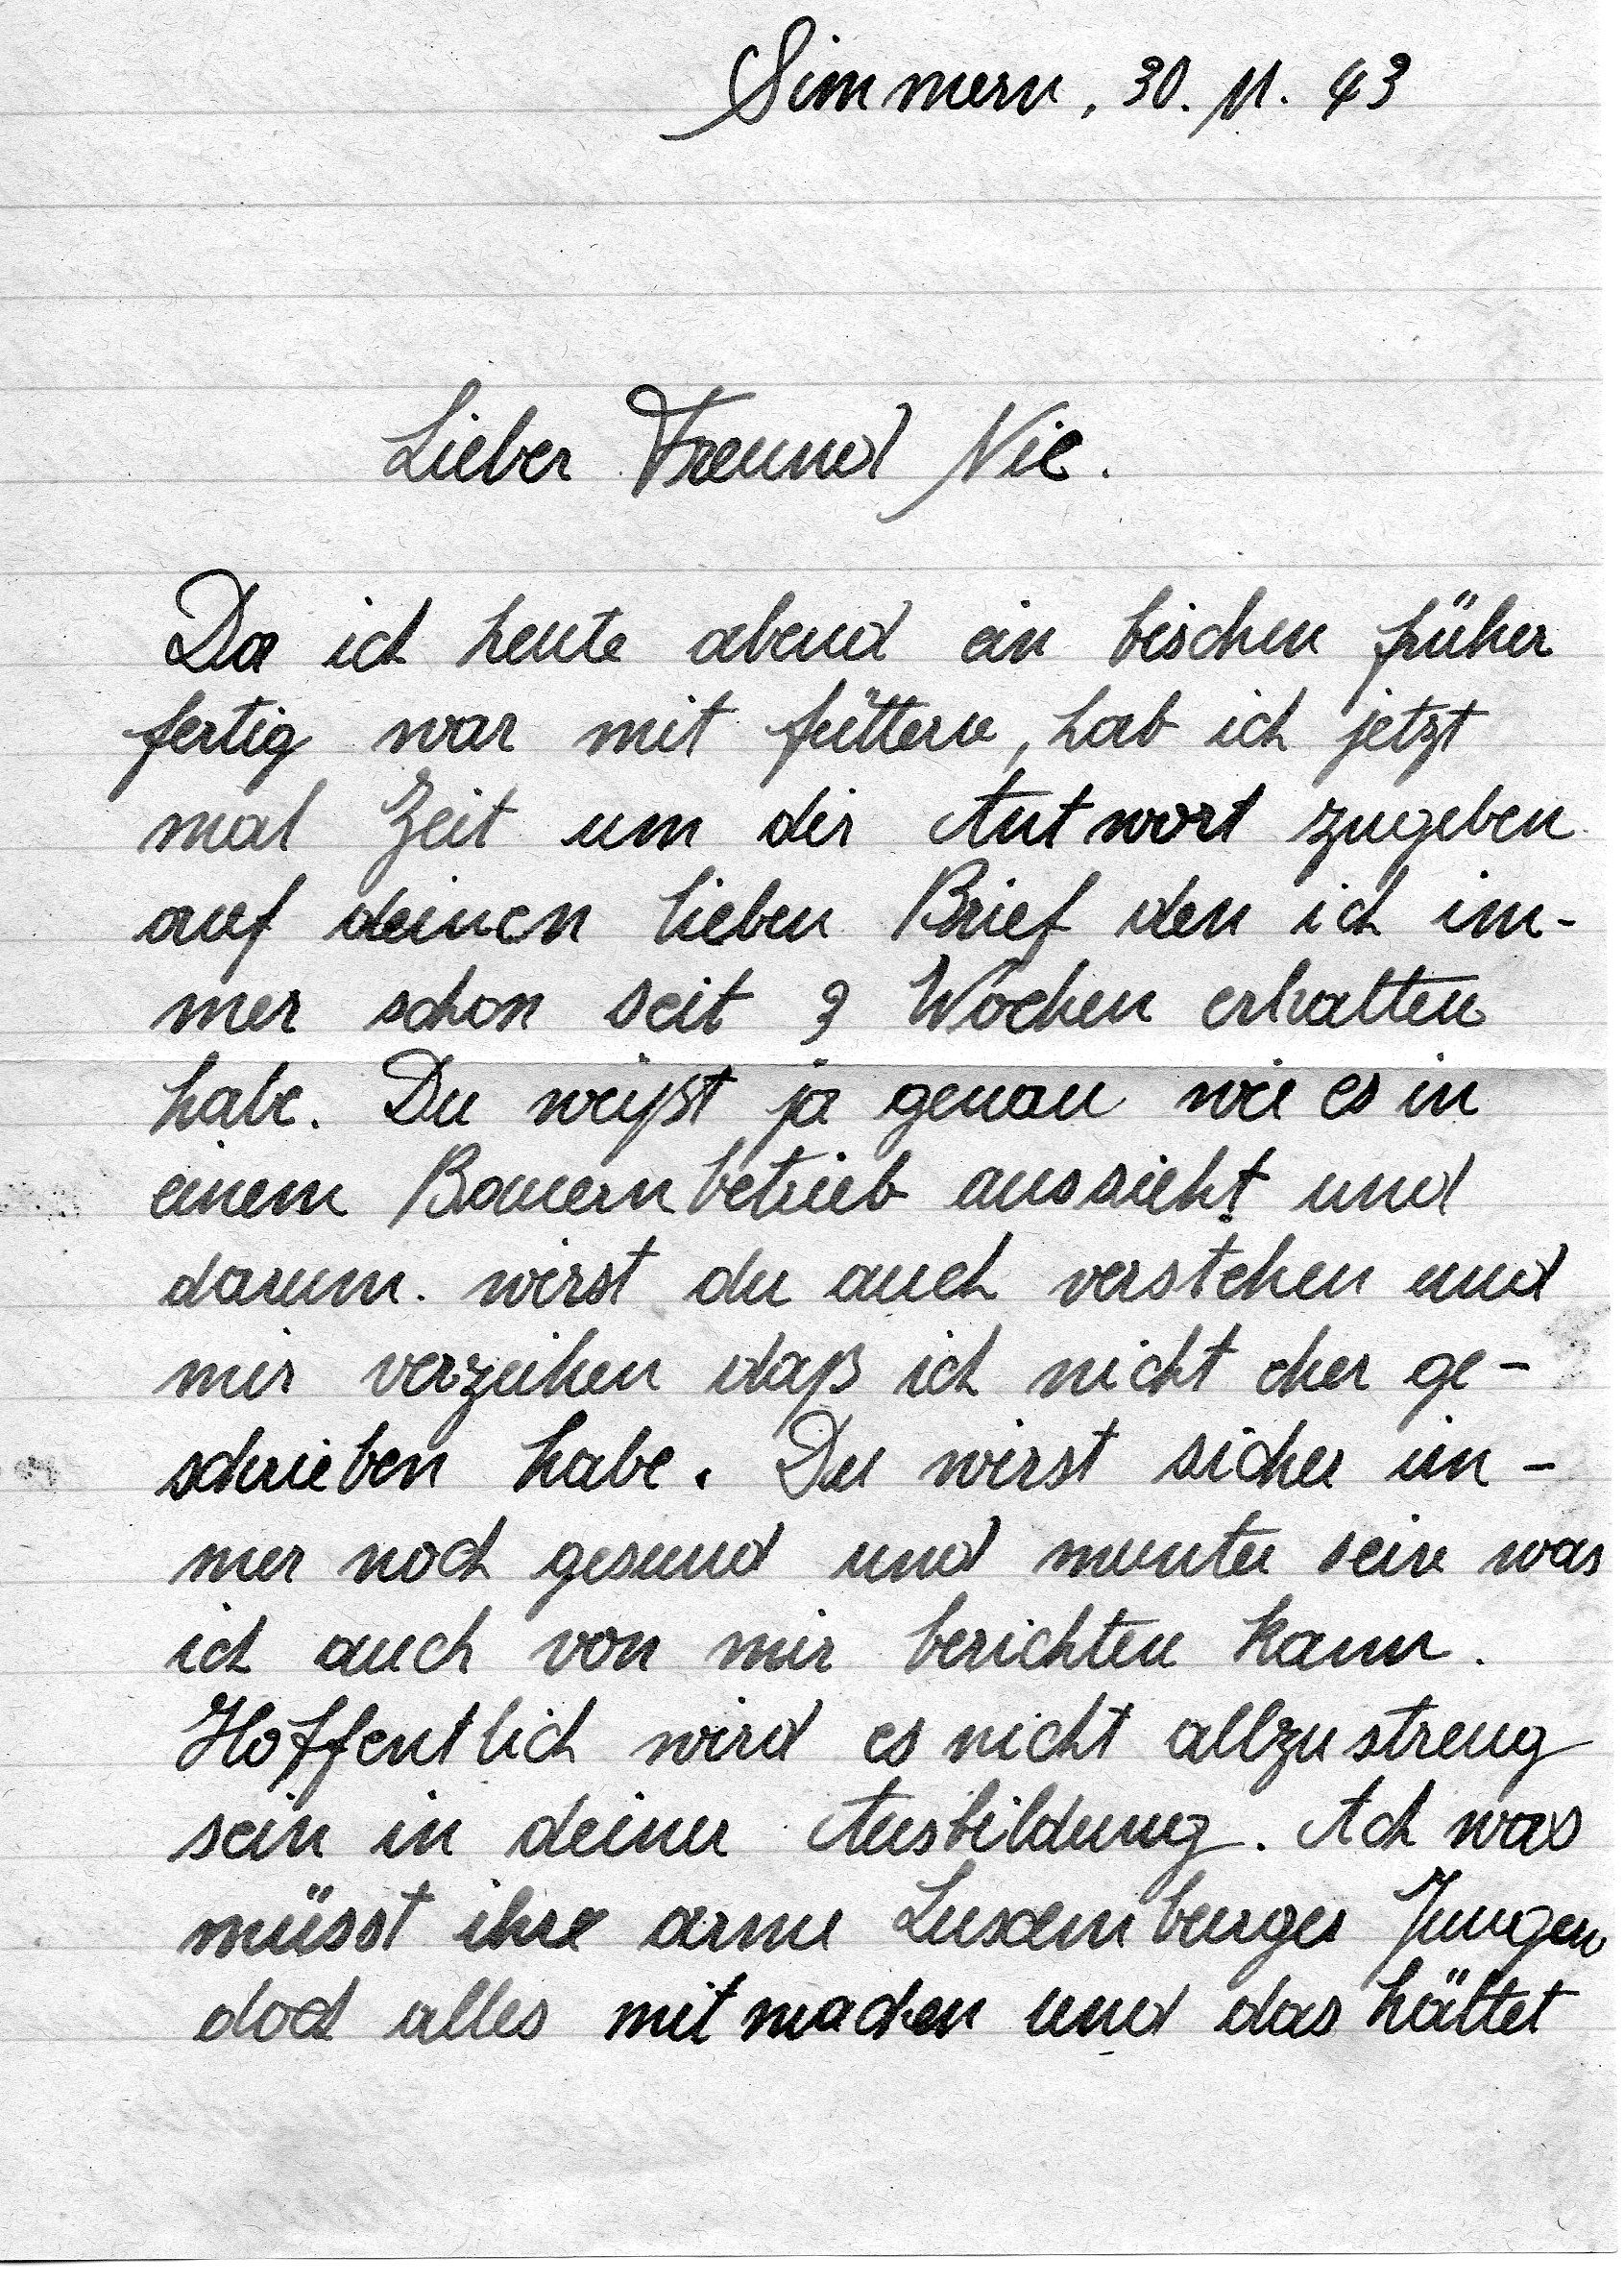 Simmern, 30. 11. 43
Lieber Freund Nic.
Da ich heute abend ein bischen früher
fertig war mit füttern, hab ich jetzt
mal Zeit um dir Antwort zugeben
auf deinen lieben Brief den ich im-
mer schon seit 3 Wochen erhalten
habe. Du weißt ja genau wie es in
einem Bauernbetrieb aussieht und
darum. wirst du auch verstehen und
mir verzeihen daß ich nicht eher ge-
schrieben habe. Du wirst sicher im-
mer noch gesund und munter sein was
ich auch von mir berichten kann.
Hoffentlich wird es nicht allzustreng
sein in deiner Ausbildung. Ach was
müsst ihre arme Luxemburger Jungen
doch alles mitmachen und das hättet